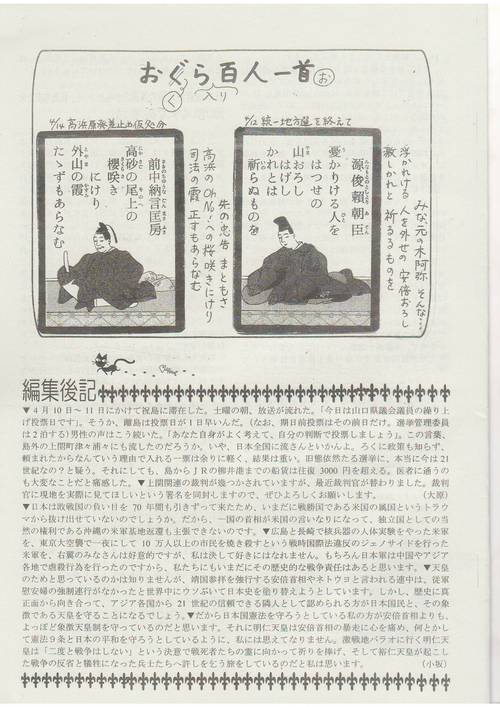 おぐら百人一首
く
入り
お
4/12 統一地方選を終えて
4/14 高浜原発差止め仮処分
みな、元の木阿弥 そんな…
浮かれける 人を外せの 安倍おろし
激しかれと 祈るるものを
源俊頼朝臣
憂かりける人を
はつせの
山おろし
はげし
かれとは
祈らぬものを
先の忠告 まともさ
高浜の Oh No!への桜咲きにけり
司法の霞 正すもあらなむ
前中納言匡房
高砂の尾上の
櫻咲き
にけり
外山の霞
たゝずもあらなむ
編集後記
▼4月10日〜11日にかけて祝島に滞在した。土曜の朝、放送が流れた。「今日は山口県議会議員の繰り上
げ投票日です」。そうか、離島は投票日が1日早いんだ。（なお、期日前投票はその前日だけ。選挙管理委員
は2泊する）男性の声はこう続いた。「あなた自身がよく考えて、自分の判断で投票しましょう」。この言葉、
島外の上関町津々浦々にも流したのだろうか。いや、日本全国に流さんといかんよ。ろくに政策も知らず、
頼まれたからなんていう理由で入れる一票は余りに軽く、結果は重い。旧態依然たる選挙に、本当に今は21
世紀なの？と疑う。それにしても、島からJRの柳井港までの船賃は往復3000円を超える。医者に通うの
も大変なことだと痛感した。▼上関関連の裁判が幾つかされていますが、最近裁判官が替わりました。裁判
官に現地を実際に見てほしいという署名を同封しますので、ぜひよろしくお願いします。（大原）
▼日本は敗戦国の負い目を70年間も引きずって来たため、いまだに戦勝国である米国の属国というトラウ
マから抜け出せていないのでしょうか。だから、一国の首相が米国の言いなりになって、独立国としての当
然の権利である沖縄の米軍基地返還も主張できないのです。▼広島と長崎で核兵器の人体実験をやった米軍
を、東京大空襲で一夜にして10万人以上の市民を焼き殺すという戦時国際法違反のジェノサイドを行った
米軍を、右翼のみなさんは好意的ですが、私は決して好きにはなれません。もちろん日本軍は中国やアジア
各地で虐殺行為を行ったのですから、私たちにもいまだにその歴史的な戦争責任はあると思います。▼天皇
のためと思っているのかは知りませんが、靖国参拝を強行する安倍首相やネトウヨと言われる連中は、従軍
慰安婦の強制連行がなかったと世界中にウソぶいて日本史を塗り替えようとしています。しかし、歴史に真
正面から向き合って、アジア各国から21世紀の信頼できる隣人として認められる方が日本国民と、その象
徴である天皇を守ることになるでしょう。▼だから日本国憲法を守ろうとしている私の方が安倍首相よりも、
よっぽど象徴天皇制を守っているのだと思います。それに明仁天皇は安倍首相の暴走に心を痛め、何とかし
て憲法9条と日本の平和を守ろうとしているように、私には思えてなりません。激戦地パラオに行く明仁天
皇は「二度と戦争はしない」という決意で戦死者たちの霊に向かって祈りを捧げ、そして裕仁天皇が起こし
た戦争の反省と犠牲になった兵士たちへ許しをむう旅をしているのだと私は思います。（小坂）